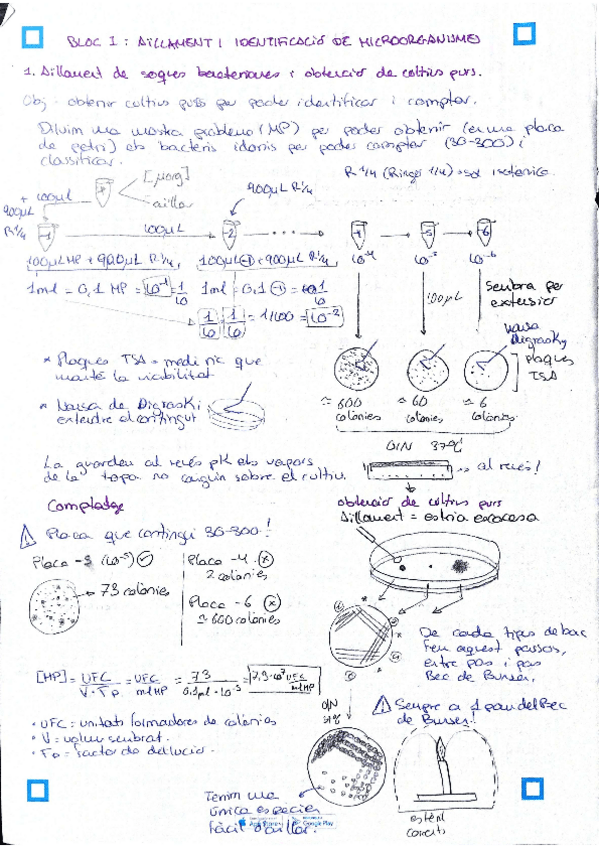 BLOC I : AÏLLAMENT I IDENTIFICACIÓ DE MICROORGANISMES
1. Aïllament de soques bacterianes i obtenció de cultius purs.
Obj - obtenir cultius purs per poder identificar i comptar.
Diluim una mostra problema (MP) per poder obtenir (en una placa
de petri) els bacteris idonis per poder comptar (30-300) i
classificar.
R 1/4 (Ringer 1/4) → sol isotònica.
[µorg]
aïllar
+ 100µL
900µL
R 1/4
900µL R 1/4
100µL
-1
-2
-4
-5
-6
100µL MP + 900µL R 1/4
100µL (-1) + 900µL R 1/4
10⁻⁴
10⁻⁵
10⁻⁶
1ml - 0,1 MP = 10⁻¹ = 1/10
1ml - 0,1 (-1) =
1/10 · 1/10 = 1/100 = 10⁻²
100µL
Sembra per
extensió
Nansa
Digraski
Plaques
TSA
* Plaques TSA = medi ric que
manté la viabilitat
* Nansa de Digraski
extendre el contingut
≈ 600
colònies
≈ 60
colònies
≈ 6
colònies
O/N 37ºC
al revés!
La guardem al revés pk els vapors
de la tapa no caiguin sobre el cultiu.
Comptatge
Placa que contingui 30-300!
obtenció de cultius purs
Aïllament = estria escocesa
Placa -5 (10⁻⁵)
→ 73 colònies
Placa -4
2 colònies
Placa -6
≈ 600 colònies
De cada tipus de bac
fem aquest passos,
entre pas i pas
Bec de Bunsen.
[MP] = UFC / V · FD = UFC / ml MP = 73 / 0,1 ml · 10⁻⁵ = 7,3 · 10⁷ UFC / ml MP
O/N
37ºC
Sempre a prop del Bec
de Bunsen!
· UFC = unitats formadores de colònies
· V = volum sembrat.
· FD = factor de dilució.
Tenim una
única espècie
fàcil d'aïllar.
estèril
App Store
Google Play